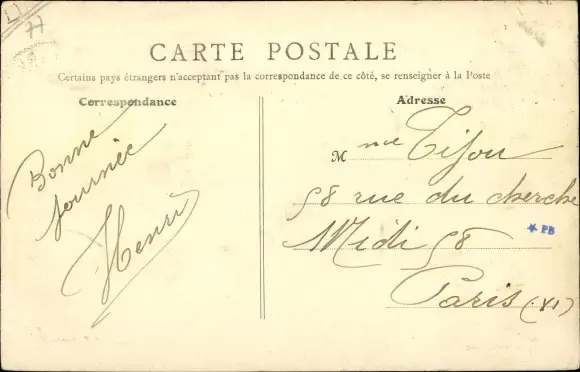 77
CARTE POSTALE
Certains pays étrangers n'acceptant pas la correspondance de ce côté, se renseigner à la Poste
Correspondance
Bonne
journée
Henri
Adresse
Mme Tijou
58 rue du cherche
Midi 58
Paris (VI)
PB